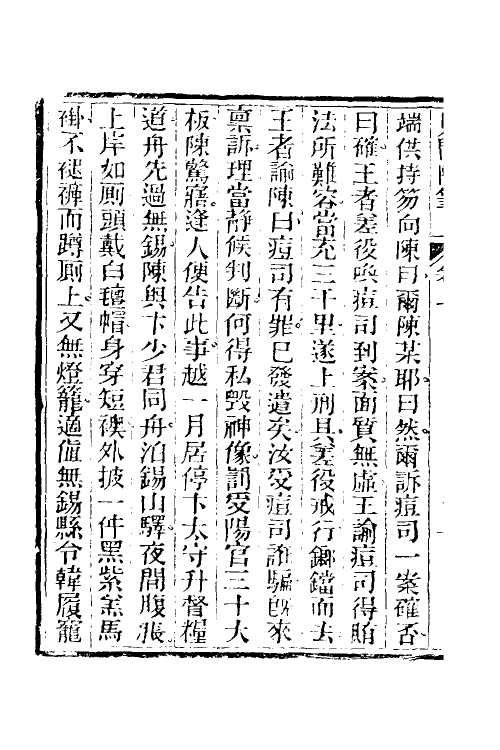 端供持笏向陳曰爾陳某耶曰然爾訴痘司一案確否
曰確王者差役喚痘司到案面質無虛王諭痘司得賄
法所難容當充三千里遂上刑具差役戒行鎯鐺而去
王者諭陳曰痘司有罪已發遣矣汝受痘司誑騙旣來
禀訴理當靜候判斷何得私毀神像罰受陽官三十大
板陳驚寤逢人便告此事越一月居停卞太守升督糧
道舟先過無錫陳與卞少君同舟泊錫山驛夜間腹脹
上岸如厠頭戴白氊帽身穿短襖外披一件黑紫羔馬
褂不褪褲而蹲厠上又無燈籠適值無錫縣令韓履籠